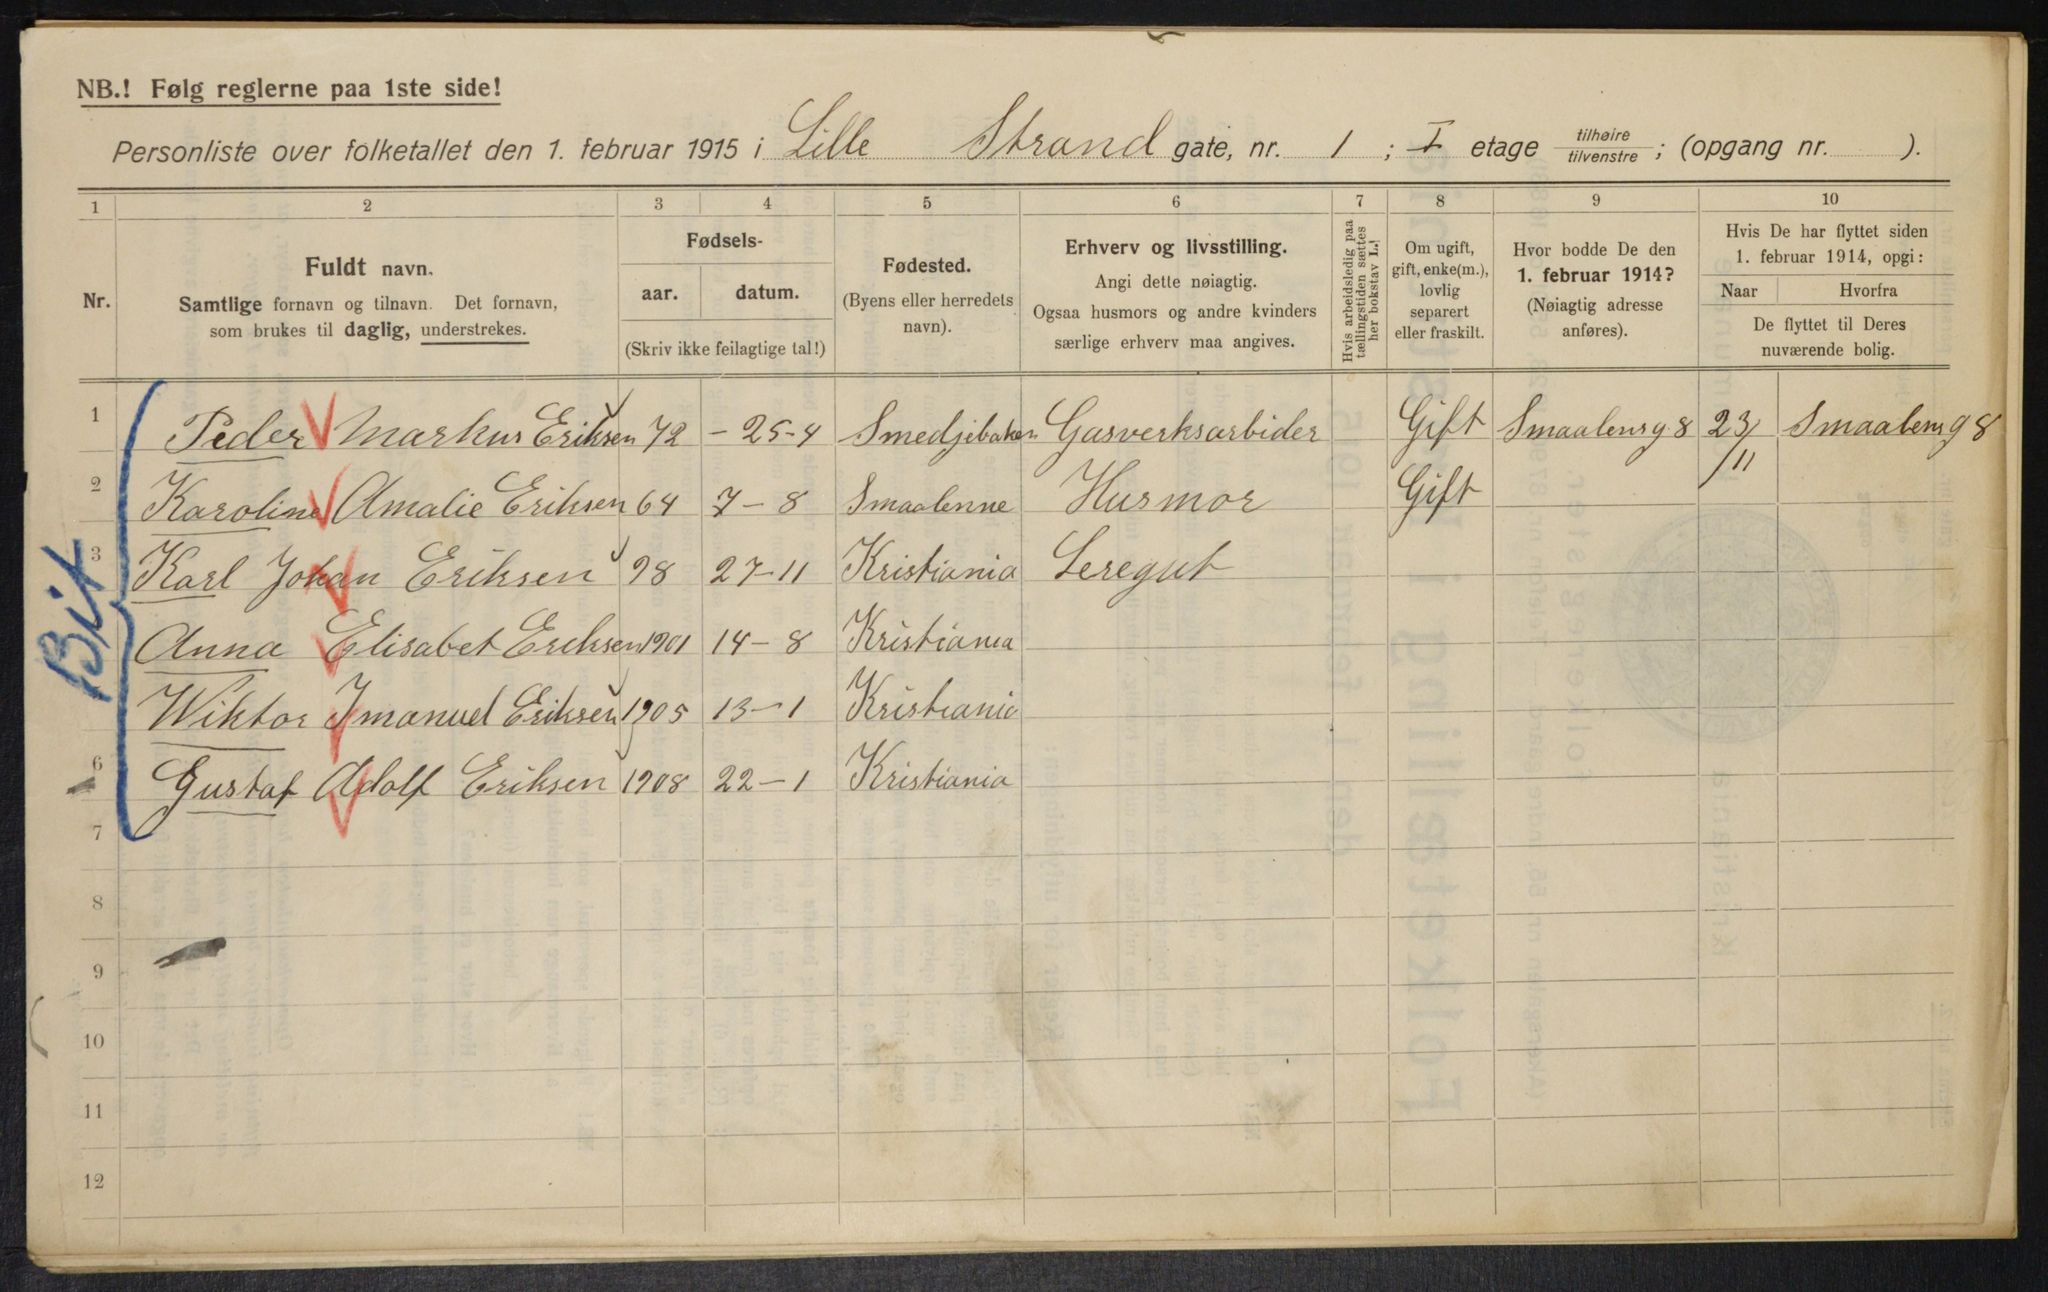 NB.! Følg reglerne paa 1ste side!
Personliste over folketallet den 1. februar 1915 i Lille Strand gate, nr. 1 ; I etage tilhøire / tilvenstre ; (opgang nr. ).
1 2 3 4 5 6 7 8 9 10
Nr.
Fuldt navn.
Samtlige fornavn og tilnavn. Det fornavn,
som brukes til daglig, understrekes.
Fødsels-
aar. datum.
(Skriv ikke feilagtige tal!)
Fødested.
(Byens eller herredets
navn).
Erhverv og livsstilling.
Angi dette nøiagtig.
Ogsaa husmors og andre kvinders
særlige erhverv maa angives.
Hvis arbeidsledig paa
tællingstiden sættes
her bokstav L.!
Om ugift,
gift, enke(m.),
lovlig
separert
eller fraskilt.
Hvor bodde De den
1. februar 1914?
(Nøiagtig adresse
anføres).
Hvis De har flyttet siden
1. februar 1914, opgi:
Naar Hvorfra
De flyttet til Deres
nuværende bolig.
Bit
1 Peder Markus Eriksen 72 - 25-4 Smedjebaken Gasverksarbider Gift Smaalensg 8 23/11 Smaalensg 8
2 Karoline Amalie Eriksen 64 7-8 Smaalenne Husmor Gift
3 Karl Johan Eriksen 98 27-11 Kristiania Seregut
Anna Elisabet Eriksen 1901 14-8 Kristiania
Wiktor Imanuel Eriksen 1905 13-1 Kristiania
6 Gustaf Adolf Eriksen 1908 22-1 Kristiania
7
8
9
10
11
12